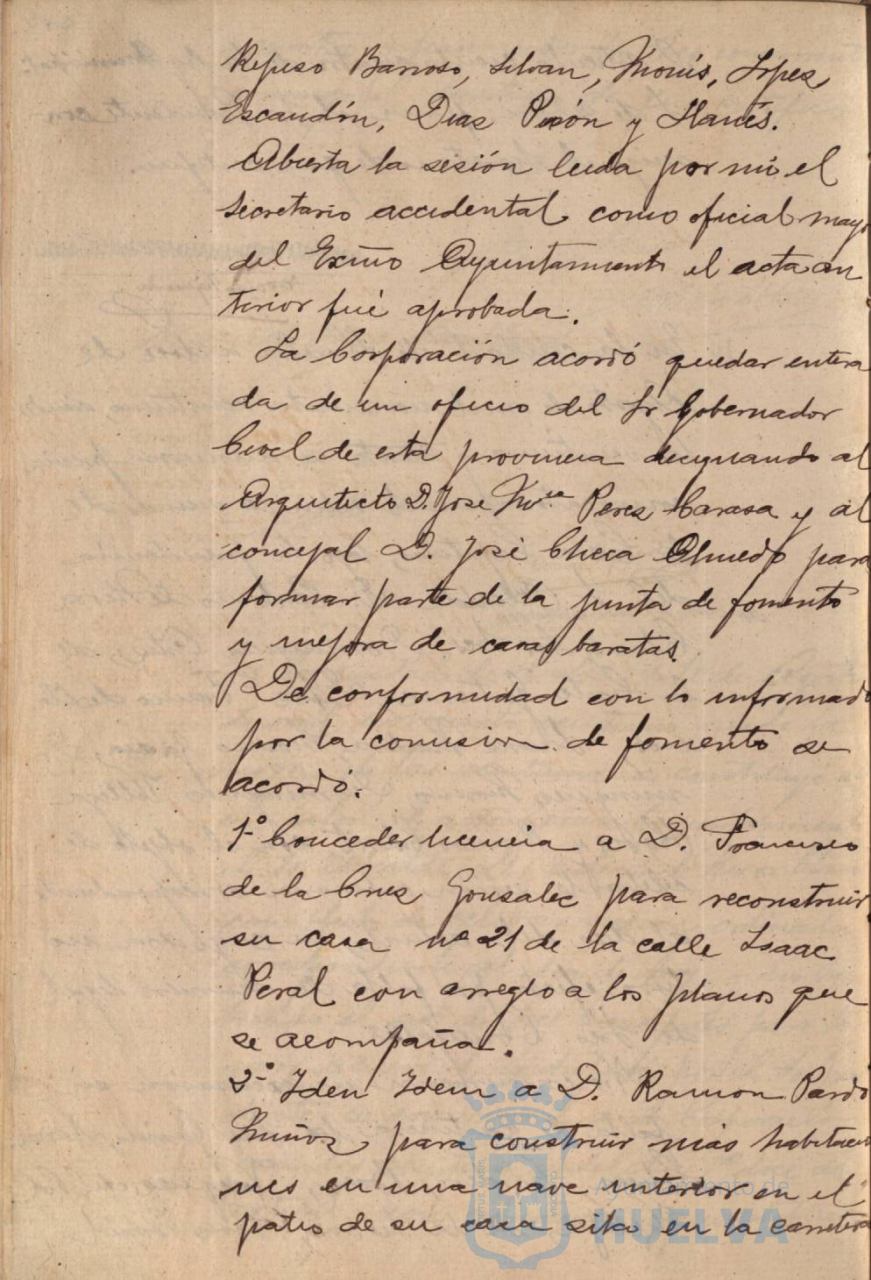 Repiso Barroso, Silvan, Monís, Lopez
Escandón, Diaz Pisón y Llanés.
Abierta la sesión leida por mi el
Secretario accidental como oficial mayor
del Exmo Ayuntamiento el acta an
terior fué aprobada.
La Corporación acordó quedar entera
da de un oficio del Sr Gobernador
Civil de esta provincia designando al
Arquitecto D. Jose Mª Perez Carasa y al
concejal D. José Checa Olmedo para
formar parte de la junta de fomento
y mejora de casas baratas.
De conformidad con lo informado
por la comision de fomento se
acordó:
1º Conceder licencia a D. Francisco
de la Cruz Gonsalec para reconstruir
su casa nº 21 de la calle Isaac
Peral con arreglo a los planos que
se acompaña.
2º Iden Idem a D. Ramon Pardo
Muñoz para construir mas habitacio
nes en una nave interior en el
patio de su casa sita en la carretera
Ayuntamiento de
HUELVA